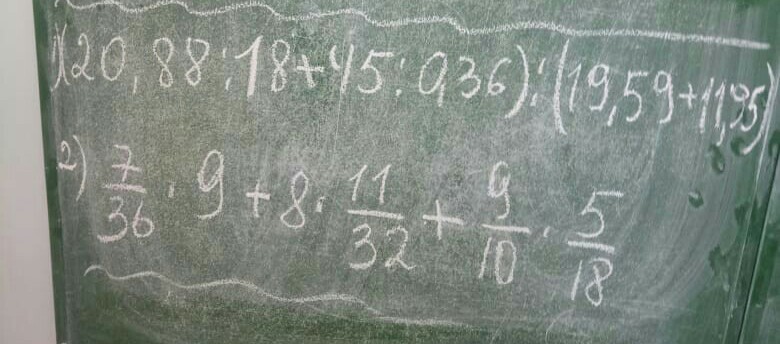 1)(20,88:18+45:0,36):(19,59+11,95)
2) 7/36 · 9 + 8 · 11/32 + 9/10 · 5/18